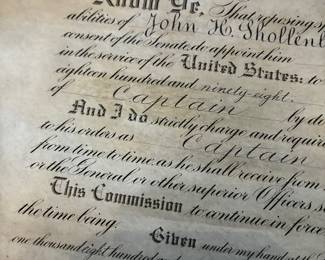 Know Ye, That reposing sp
abilities of John H. Shollenb
consent of the Senate, do appoint him
in the service of the United States: to
eighteen hundred and ninety-eight.
of Captain by do
And I do strictly charge and requir
to his orders as Captain
from time to time as he shall receive from
or the General or other superior Officers s
This Commission to continue in force
the time being.
Given under my hand at the
one thousand eight hundred